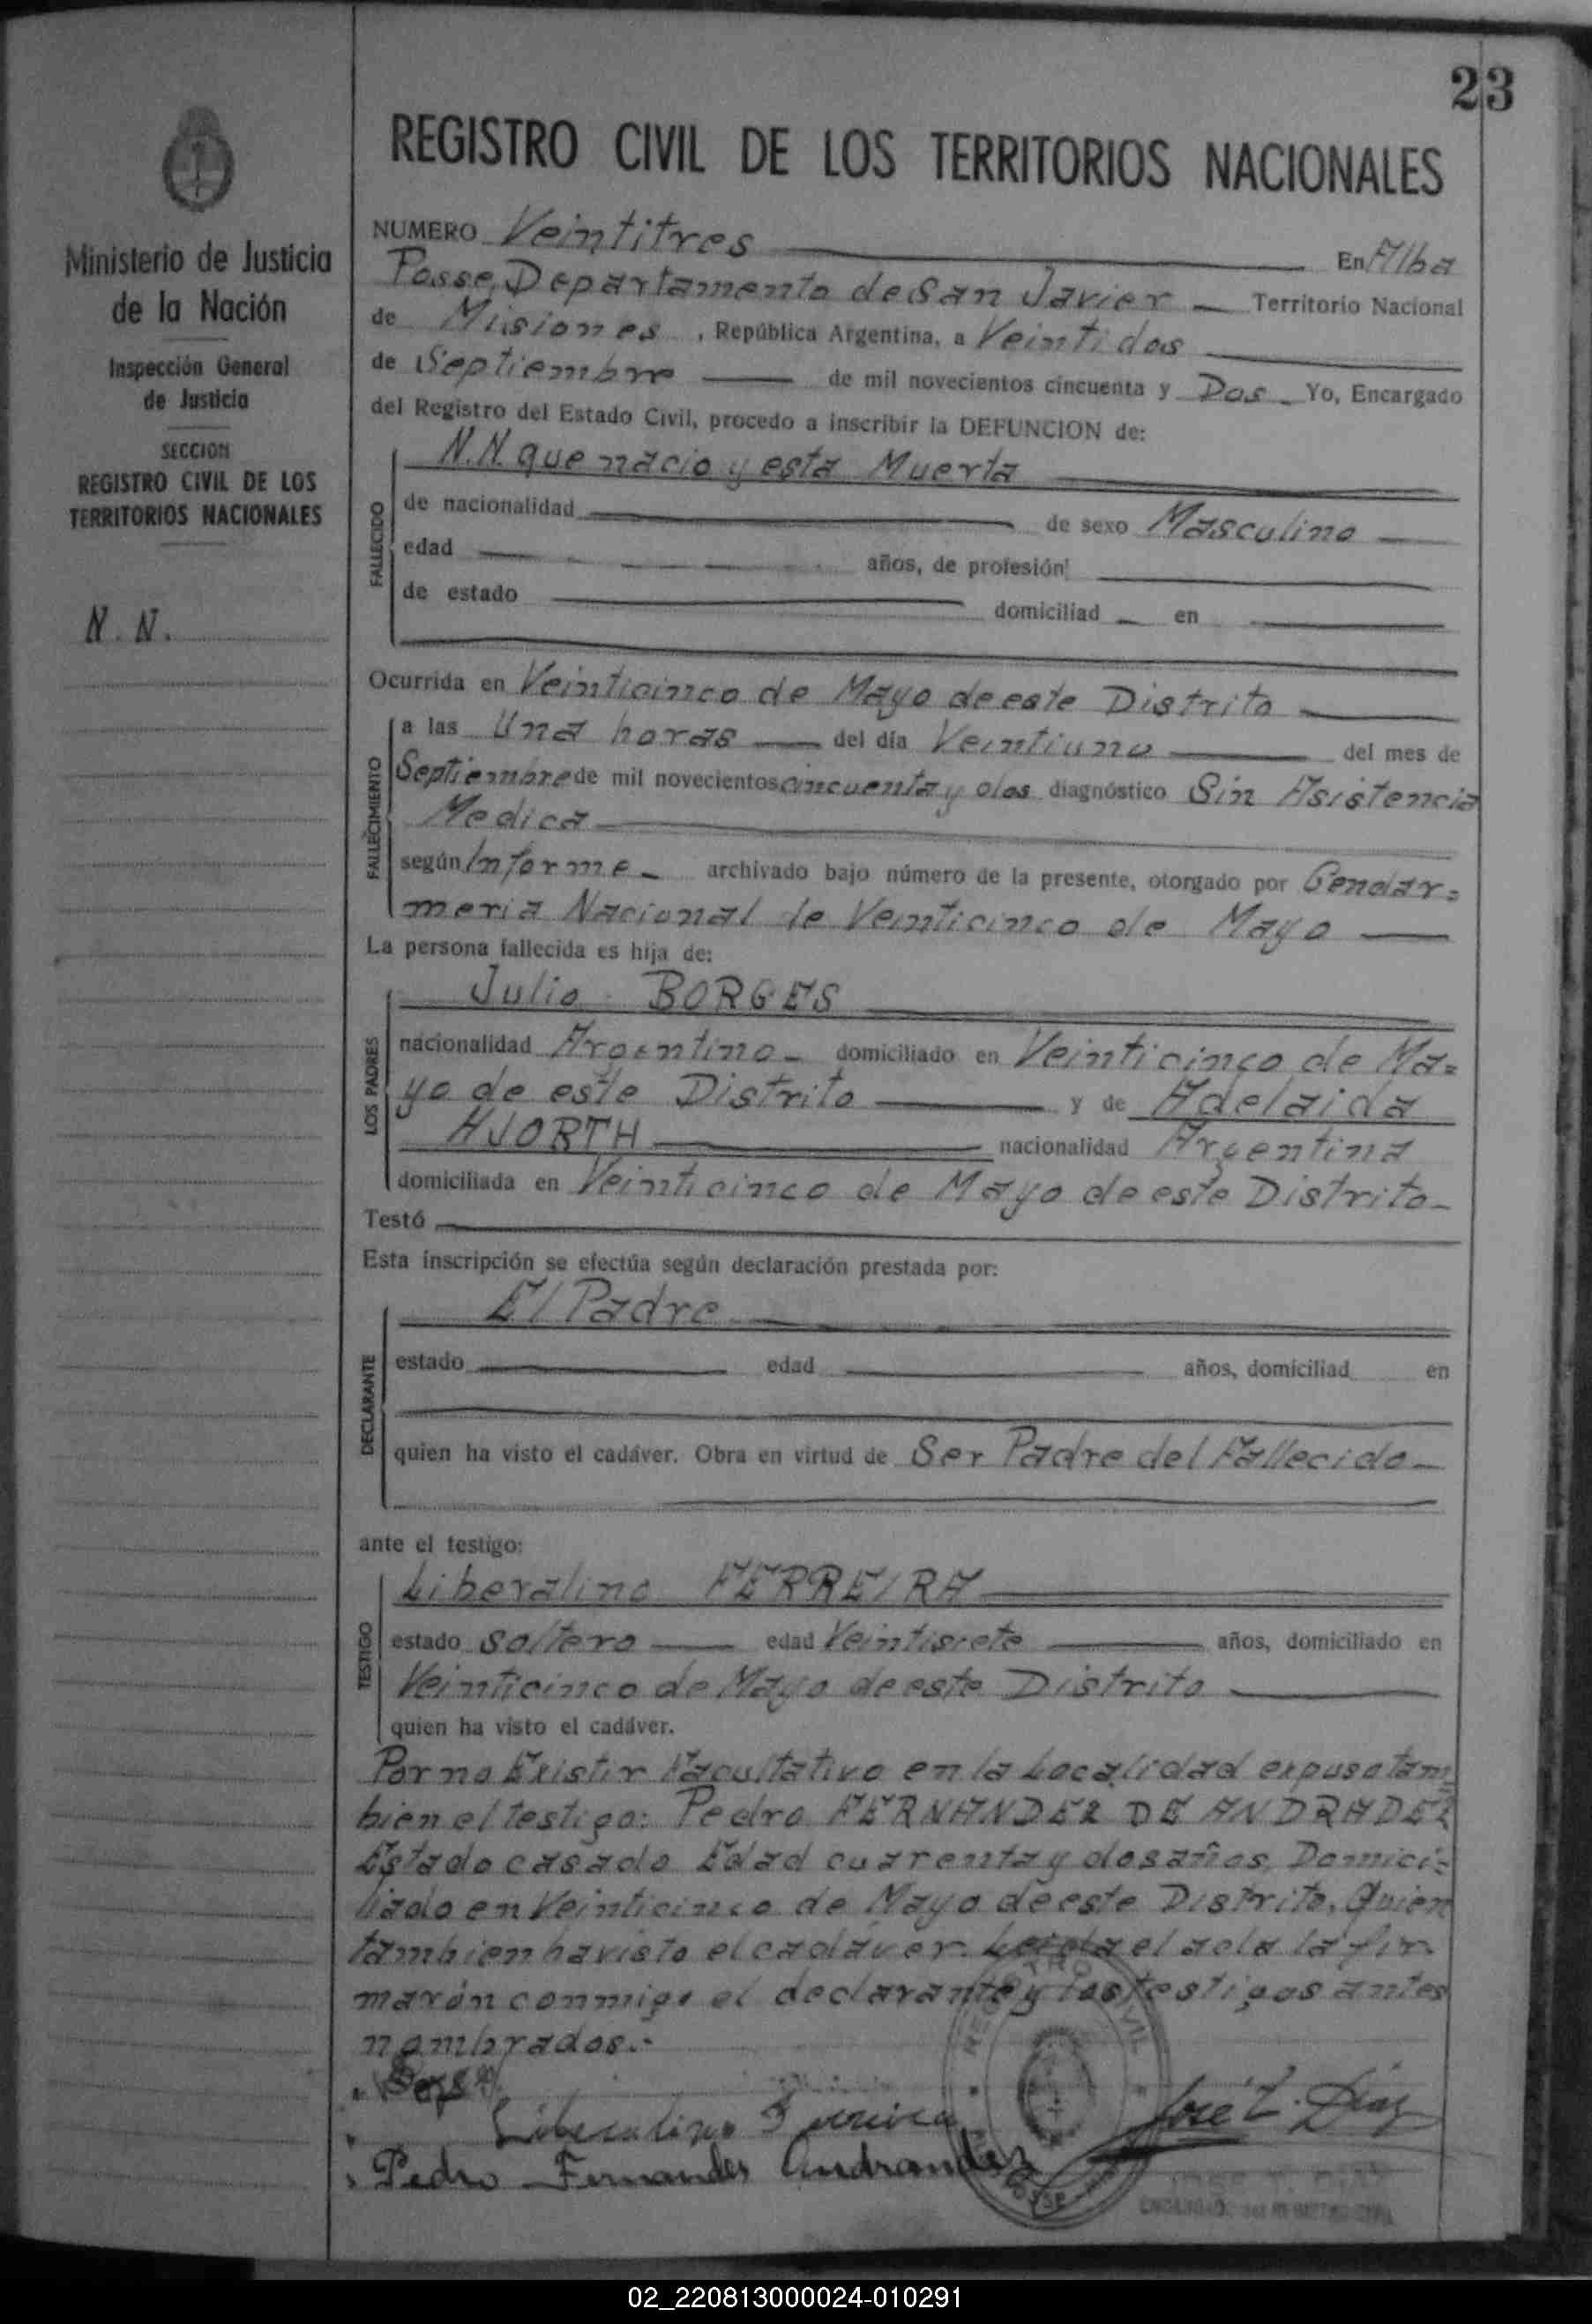 23
REGISTRO CIVIL DE LOS TERRITORIOS NACIONALES
Ministerio de Justicia
de la Nación
Inspección General
de Justicia
SECCION
REGISTRO CIVIL DE LOS
TERRITORIOS NACIONALES
N. N.
NUMERO Veintitres En Alba
Posse, Departamento de San Javier Territorio Nacional
de Misiones, República Argentina, a Veintidos
de Septiembre de mil novecientos cincuenta y Dos Yo, Encargado
del Registro del Estado Civil, procedo a inscribir la DEFUNCION de:
FALLECIDO
N.N. que nacio y esta Muerta
de nacionalidad de sexo Masculino
edad años, de profesión
de estado domiciliad en
Ocurrida en Veinticinco de Mayo de este Distrito
FALLECIMIENTO
a las Una horas del día Veintiuno del mes de
Septiembre de mil novecientos cincuenta y dos diagnóstico Sin Asistencia
Medica
según Informe archivado bajo número de la presente, otorgado por Gendar=
meria Nacional de Veinticinco de Mayo
La persona fallecida es hija de:
LOS PADRES
Julio BORGES
nacionalidad Argentino domiciliado en Veinticinco de Ma=
yo de este Distrito y de Adelaida
HJORTH nacionalidad Argentina
domiciliada en Veinticinco de Mayo de este Distrito
Testó
Esta inscripción se efectúa según declaración prestada por:
DECLARANTE
El Padre
estado edad años, domiciliad en
quien ha visto el cadáver. Obra en virtud de Ser Padre del Fallecido
ante el testigo:
TESTIGO
Liberalino FERREIRA
estado soltero edad Veintisiete años, domiciliado en
Veinticinco de Mayo de este Distrito
quien ha visto el cadáver.
Por no Existir Facultativo en la Localidad expuso tam=
bien el testigo: Pedro FERNANDEZ DE ANDRADEZ
Estado casado Edad cuarenta y dos años, Domici=
liado en Veinticinco de Mayo de este Distrito, Quien
tambien ha visto el cadáver. Leida el acta la fir=
marón conmigo el declarante y los testigos antes
nombrados.-
Liberalino Ferreira José Z. Díaz
Pedro Fernandes Andrandez
REGISTRO CIVIL
POSSE
02_220813000024-010291